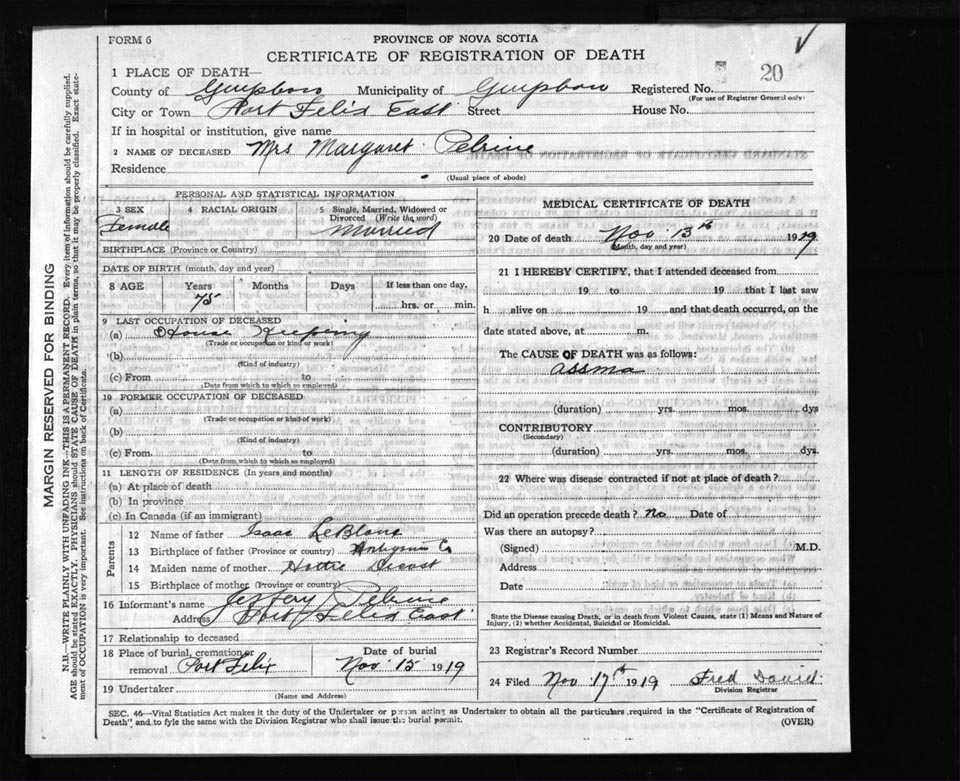 FORM 6
PROVINCE OF NOVA SCOTIA
CERTIFICATE OF REGISTRATION OF DEATH
20
1 PLACE OF DEATH—
County of Guysboro Municipality of Guysboro Registered No.
(For use of Registrar General only)
City or Town Port Felix East Street House No.
If in hospital or institution, give name
2 NAME OF DECEASED Mrs Margaret Pelrine
Residence
(Usual place of abode)
PERSONAL AND STATISTICAL INFORMATION
3 SEX 4 RACIAL ORIGIN 5 Single, Married, Widowed or Divorced (Write the word)
Female Married
BIRTHPLACE (Province or Country)
DATE OF BIRTH (month, day and year)
8 AGE Years Months Days If less than one day,
75 hrs. or min.
9 LAST OCCUPATION OF DECEASED
(a) House Keeping
(Trade or occupation or kind of work)
(b)
(Kind of industry)
(c) From to
(Date from which to which so employed)
10 FORMER OCCUPATION OF DECEASED
(a)
(Trade or occupation or kind of work)
(b)
(Kind of industry)
(c) From to
(Date from which to which so employed)
11 LENGTH OF RESIDENCE (In years and months)
(a) At place of death
(b) In province
(c) In Canada (if an immigrant)
Parents
12 Name of father Isaac LeBlanc
13 Birthplace of father (Province or country) Co
14 Maiden name of mother Hattie
15 Birthplace of mother (Province or country)
16 Informant's name Jeffery Pelrine
Address Port Felix East
17 Relationship to deceased
18 Place of burial, cremation or removal Port Felix
Date of burial
Nov 15 1919
19 Undertaker
(Name and Address)
MEDICAL CERTIFICATE OF DEATH
20 Date of death Nov 13th 1919
(Month, day and year)
21 I HEREBY CERTIFY, that I attended deceased from
19 to 19 that I last saw
h alive on 19 and that death occurred, on the
date stated above, at m.
The CAUSE OF DEATH was as follows:
assma
(duration) yrs. mos. dys
CONTRIBUTORY
(Secondary)
(duration) yrs. mos. dys.
22 Where was disease contracted if not at place of death?
Did an operation precede death? No Date of
Was there an autopsy?
(Signed) M.D.
Address
Date
State the Disease causing Death, or in death from Violent Causes, state (1) Means and Nature of
Injury, (2) whether Accidental, Suicidal or Homicidal.
23 Registrar's Record Number
24 Filed Nov 17th 1919 Fred David
Division Registrar
SEC. 46—Vital Statistics Act makes it the duty of the Undertaker or person acting as Undertaker to obtain all the particulars required in the "Certificate of Registration of
Death" and to fyle the same with the Division Registrar who shall issue the burial permit.
(OVER)
MARGIN RESERVED FOR BINDING
N.B.—WRITE PLAINLY WITH UNFADING INK—THIS IS A PERMANENT RECORD. Every item of information should be carefully supplied.
AGE should be stated EXACTLY. PHYSICIANS should STATE CAUSE OF DEATH in plain terms, so that it may be properly classified. Exact state-
ment of OCCUPATION is very important. See instructions on back of Certificate.